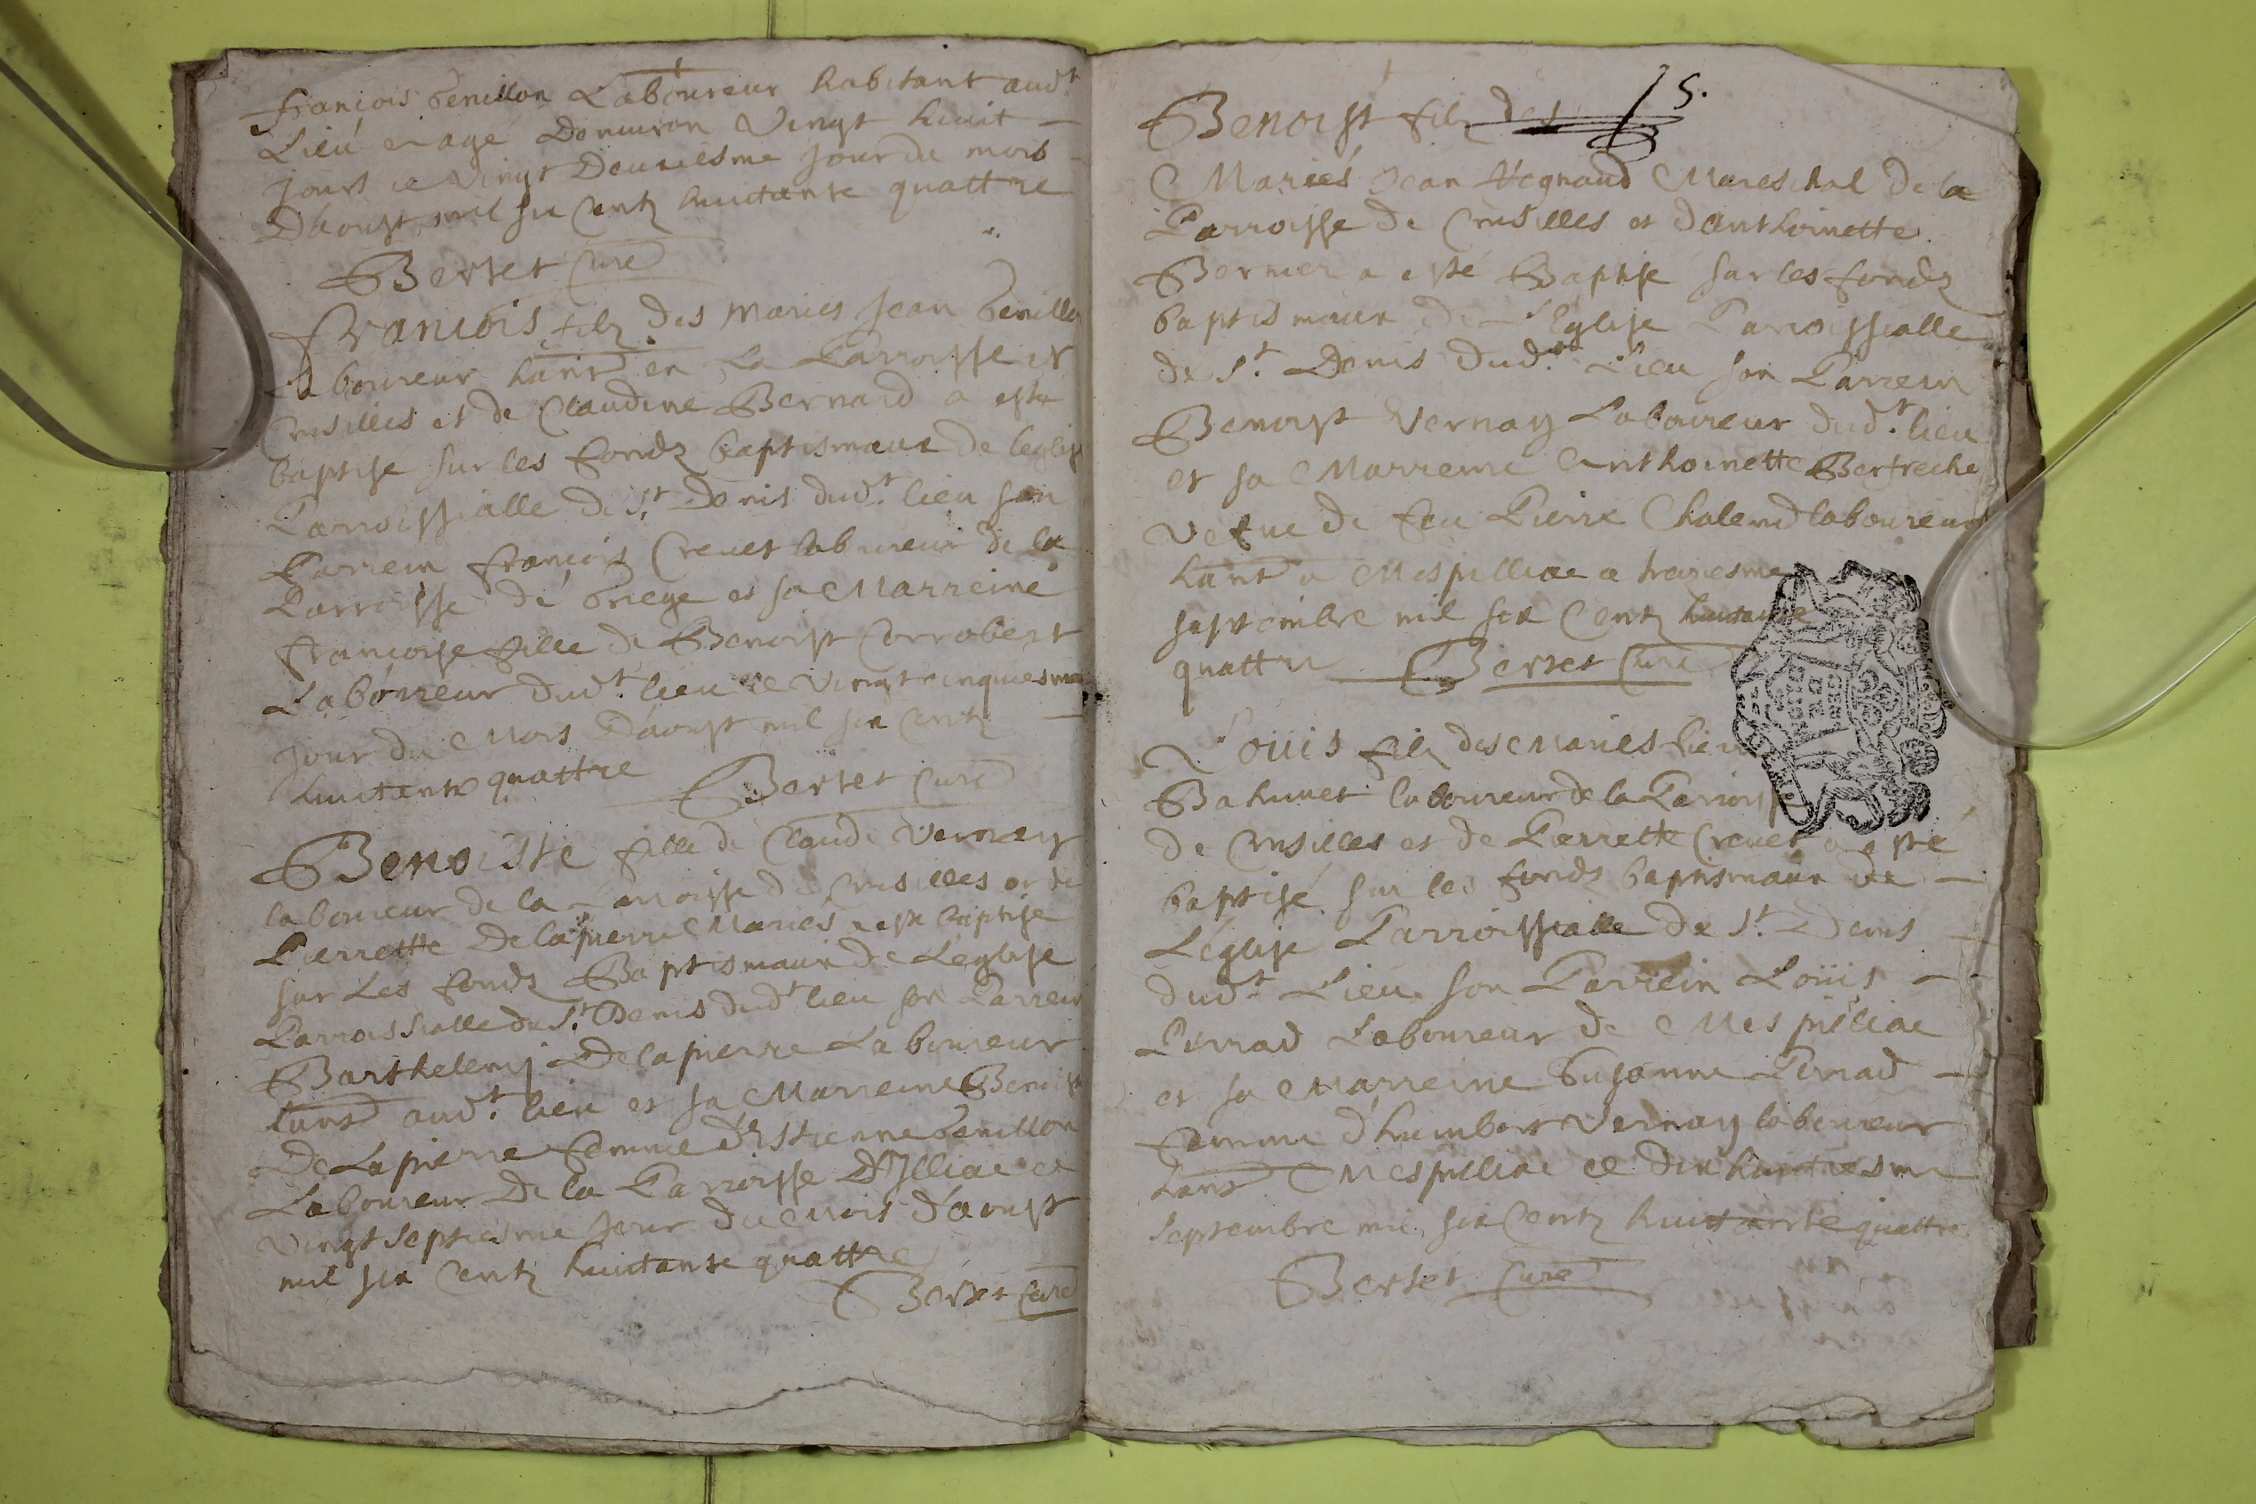 françois benillon Laboureur habitant aud.t
Lieu et agé Denuiron Vingt huit
jours ce vingt Deuxiesme jour du mois
Daoust mil six Centz huictante quattre
Bertet Curé
François filz des Maries Jean benillon
Laboureur hant en La Parroisse de
Crusilles et de Claudine Bernard a esté
baptise sur les fondz baptismaux de leglise
Parroissialle de S.t Denis dud.t lieu son
Parrein françois Creuet laboureur de la
Parroisse de briege et sa Marreine
françoise fille de Benoist Corrobert
Laboureur dud.t lieu ce vingt cinquiesme
jour du Mois Daoust mil six Centz
huictante quattre Bertet Curé
Benoiste fille de Claude Vernay
laboureur de la Parroisse de Crusilles et de
Pierrette Delapierre Mariés a esté baptise
sur Les fondz Baptismaux de Leglise
Parroissialle de S.t Denis dud.t lieu son Parrein
Barthelemy Delapierre Laboureur
hant aud.t lieu et sa Marreine Benoiste
De Lapierre femme d'Estienne benillon
Laboureur De la Parroisse D'Illiac ce
vingt septiesme jour du Mois d'aoust
mil six Centz huictante quattre
Bertet Curé
5.
Benoist filz des
Mariés Jean Regnaud Mareschal De la
Parroisse de Crusilles et danthoinette
Bernier a esté Baptise sur les fondz
baptismaux de L'Eglise Parroissialle
de S.t Denis dud.t Lieu son Parrein
Benoist Vernay Laboureur dud.t lieu
et sa Marreine Anthoinette Bertreche
vefue de feu Pierre Chaland laboureur
hant a Mespilliac a traiziesme
septembre mil six Centz huictante
quattre Bertet Curé
Louis filz des Mariés
Bahuuet laboureur de la Parroisse
de Crusilles et de Pierrette Creuet a esté
baptisé sur les fondz baptismaux de
L'églize Parroissialle de S.t Denis
dud.t Lieu son Parrein Louis
Perrad Laboureur de Mespiliac
et sa Marreine Susanne Perrad
femme d'humbert Vernay laboureur
hant Mespilliac ce dix huictiesme
septembre mil six Centz huictante quattre
Bertet Curé